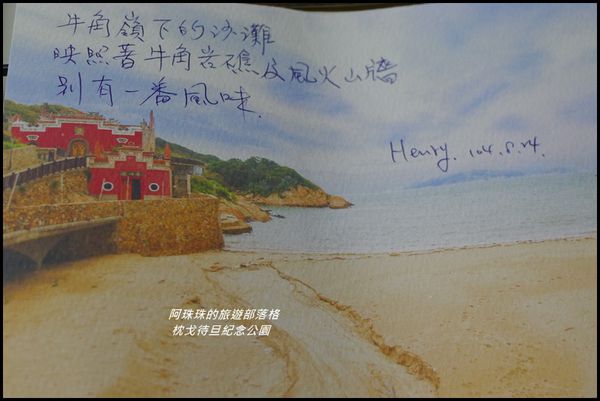 牛角嶺下的沙灘
映照著牛角岩礁及風火山牆
別有一番風味.
Henry. 104.8.24.
阿珠珠的旅遊部落格
枕戈待旦紀念公園